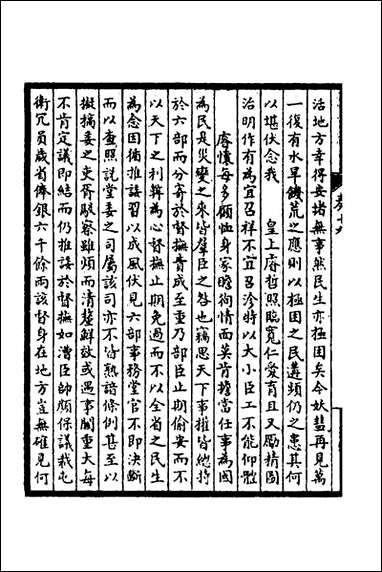 活地方幸得安堵無事然民生亦極困矣今妖彗再見萬
一復有水旱饑荒之應則以極困之民遘頻仍之患其何
以堪伏念我　皇上睿哲照臨寬仁愛育且又勵精圖
治明作有為宜召祥不宜召沴特以大小臣工不能仰體
睿懷每多顧恤身家瞻徇情面莫肯擔當任事為國
為民是災變之來皆羣臣之咎也竊思天下事權皆總持
於六部而分寄於督撫責成至重乃部臣止期偷安而不
以天下之利弊為心督撫止期免過而不以全省之民生
為念因循推諉習以成風伏見六部事務堂官不即決斷
而以查照說堂委之司屬該司亦不皆熟諳條例甚至以
擬摘委之吏胥駁察雖煩而清釐鮮效或遇事關重大每
不肯定議即結而仍推諉於督撫如漕臣帥顏保議裁屯
衛冗員歲省俸銀六千餘兩該督身在地方豈無確見何